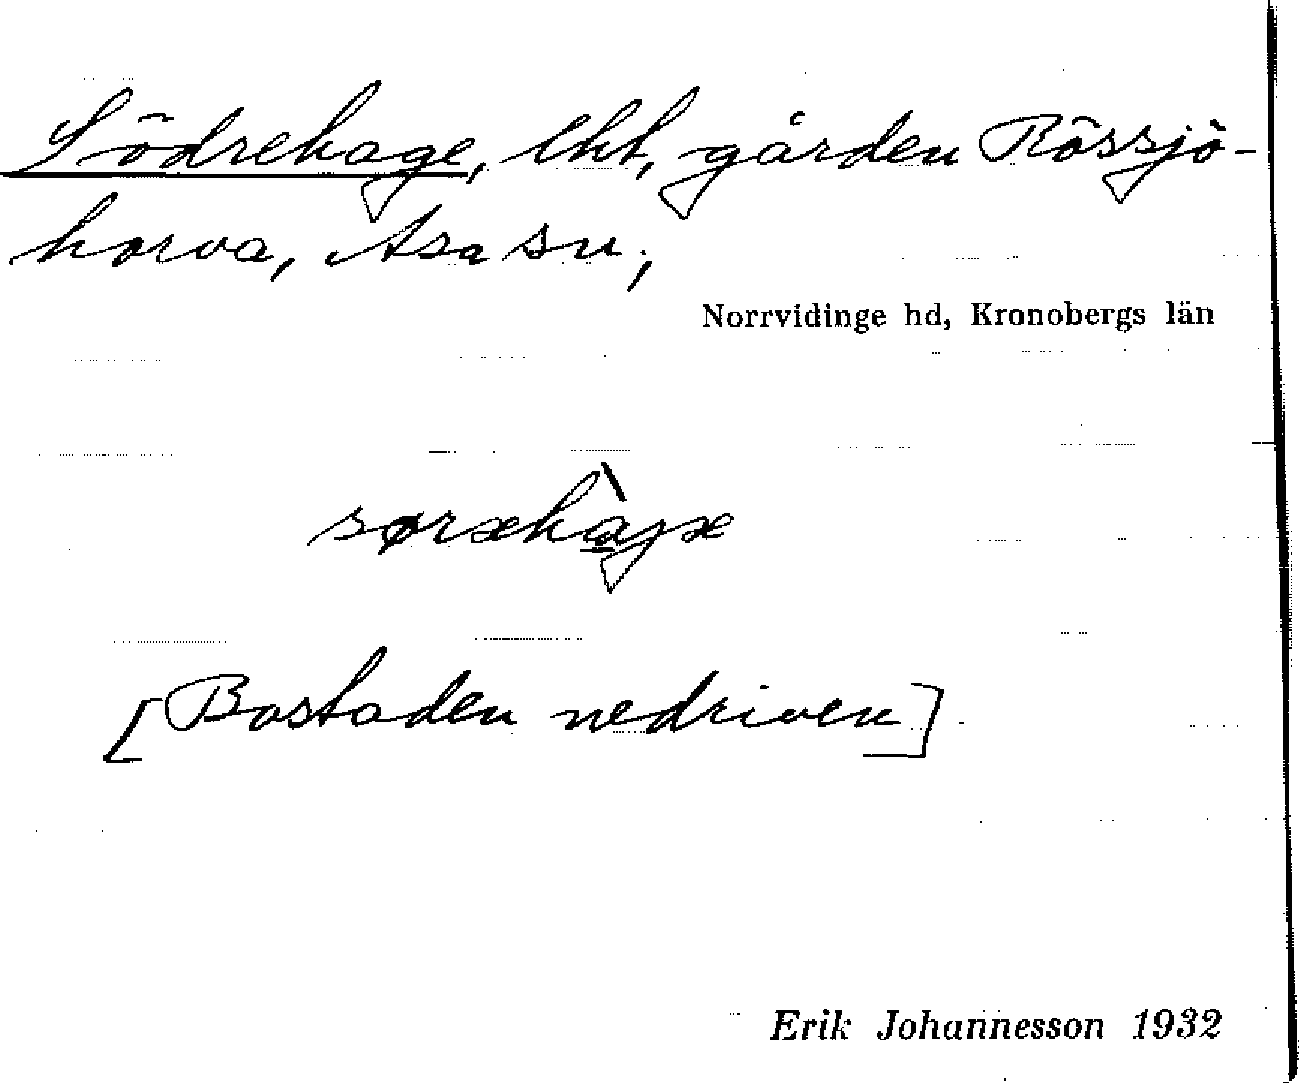 Södrehage, lht, gården Rössjö-
horva, Asa sn;
Norrvidinge hd, Kronobergs län
[Bostaden nedriven]
Erik Johannesson 1932